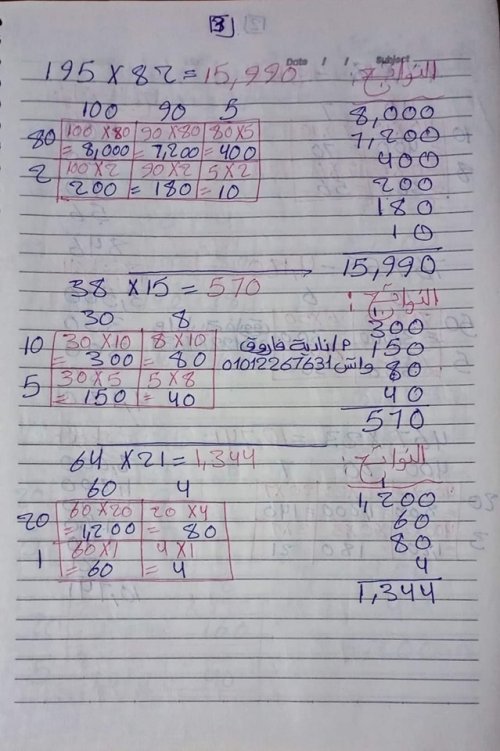 3
Date / / Subject
195 × 82 = 15,990 النواتج:
100 90 5 8,000
80 100 × 80 90 × 80 80 × 5 7,200
= 8,000 = 7,200 = 400 400
2 100 × 2 90 × 2 5 × 2 200
200 = 180 = 10 180
10
15,990
38 × 15 = 570 النواتج:
30 8 300
10 30 × 10 8 × 10 م/نادية فاروق 150
= 300 = 80 واتس 01012267631 80
5 30 × 5 5 × 8 40
= 150 = 40 570
64 × 21 = 1,344 النواتج:
60 4 1,200
20 60 × 20 20 × 4 60
= 1,200 = 80 80
1 60 × 1 4 × 1 4
= 60 = 4 1,344